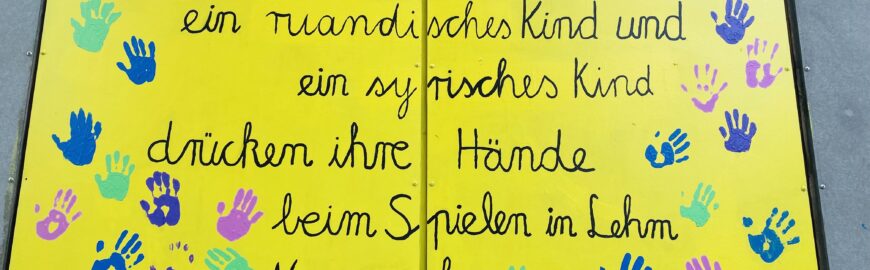 ein ruandisches Kind und
ein syrisches Kind
drücken ihre Hände
beim Spielen in Lehm